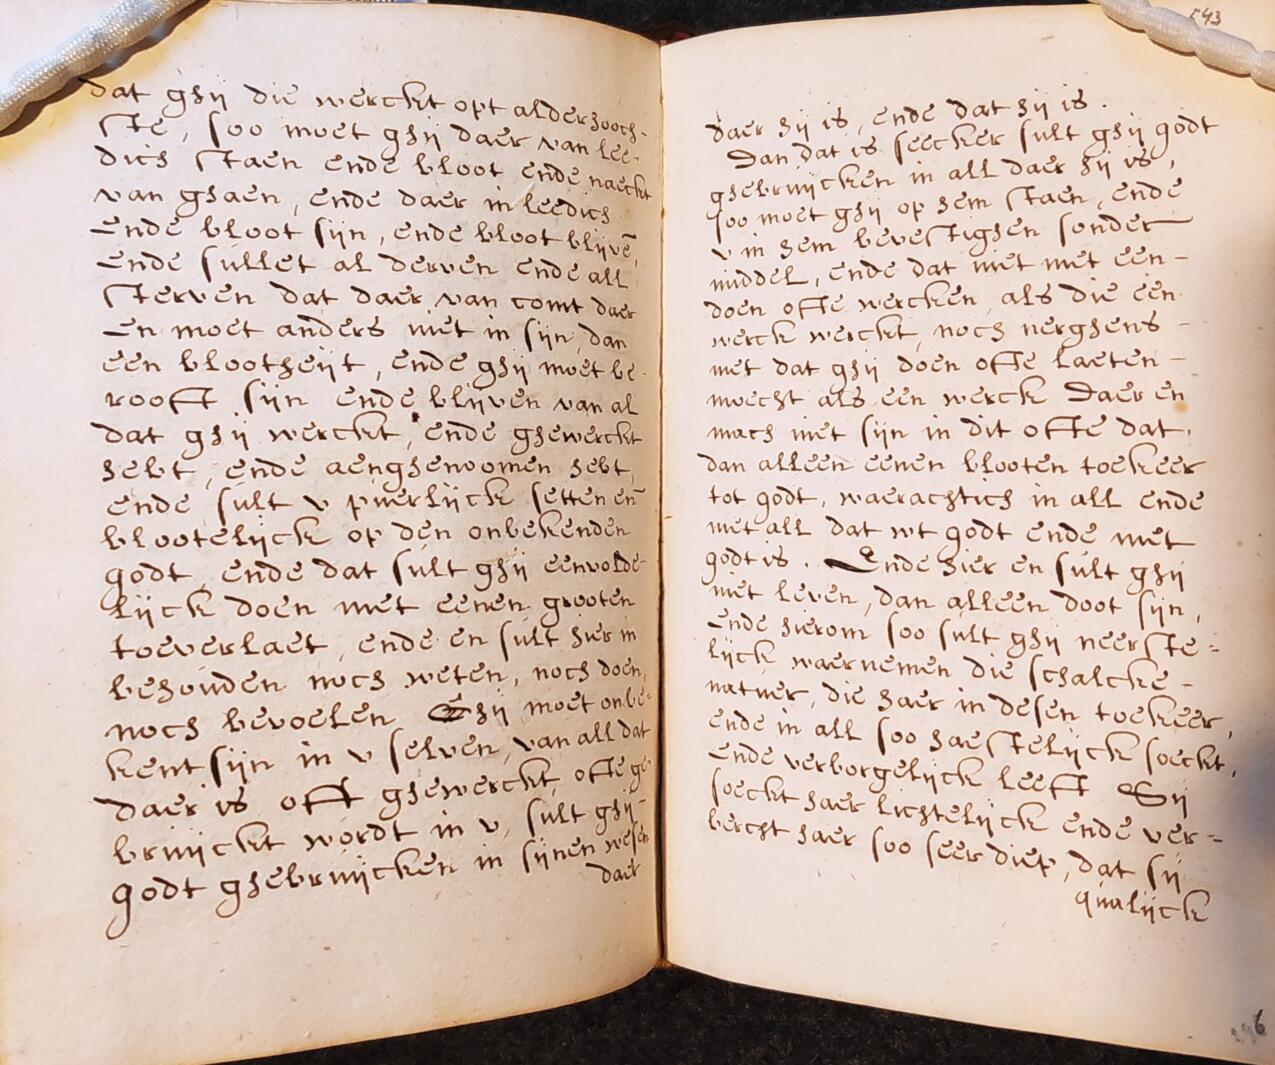 dat ghij die werckt opt alderhooch-
ste, soo moet ghij daer van lee-
dich staen ende bloot ende naeckt
van ghaen, ende daer in leedich
Ende bloot sijn, ende bloot blijvē,
Ende sullet al derven ende all
sterven dat daer van comt daer
En moet anders niet in sijn, dan
een blootheijt, ende ghij moet be-
rooft sijn ende blijven van al
dat ghij werckt, ende ghewerckt
hebt, ende aenghenoomen hebt,
ende sult v puerlijck setten en̄
blootelijck op den onbekenden
godt, ende dat sult ghij eenvolde-
lijck doen met eenen grooten
toeverlaet, ende en sult hier in
behouden noch weten, noch doen,
noch bevoelen Ghij moet onbe-
kent sijn in v selven, van all dat
daer is oft ghewerckt, ofte ge-
bruijckt wordt in v, sult ghij-
godt ghebruijcken in sijnen wesen
daer
143
daer hij is, ende dat hij is.
Dan dat is seecker sult ghij godt
ghebruijcken in all daer hij is,
soo moet ghij op hem staen, ende
v in hem bevestighen sonder
middel, ende dat niet met een-
doen ofte wercken, als die een
werck werckt, noch nerghens -
met dat ghij doen ofte laeten -
moecht als een werck Daer en
mach niet sijn in dit ofte dat,
dan alleen eenen blooten toekeer
tot godt, waerachtich in all ende
met all dat wt godt ende met
godt is. Ende hier en sult ghij
niet leven, dan alleen doot sijn,
Ende hierom soo sult ghij neerste=
lijck waernemen die schalcke -
natuer, die haer in desen toekeer,
ende in all soo haestelijck soeckt,
ende verborgelijck leeft Sij
soeckt haer lichtelijck ende ver-
bercht haer soo seer diep, dat sij
qualijck